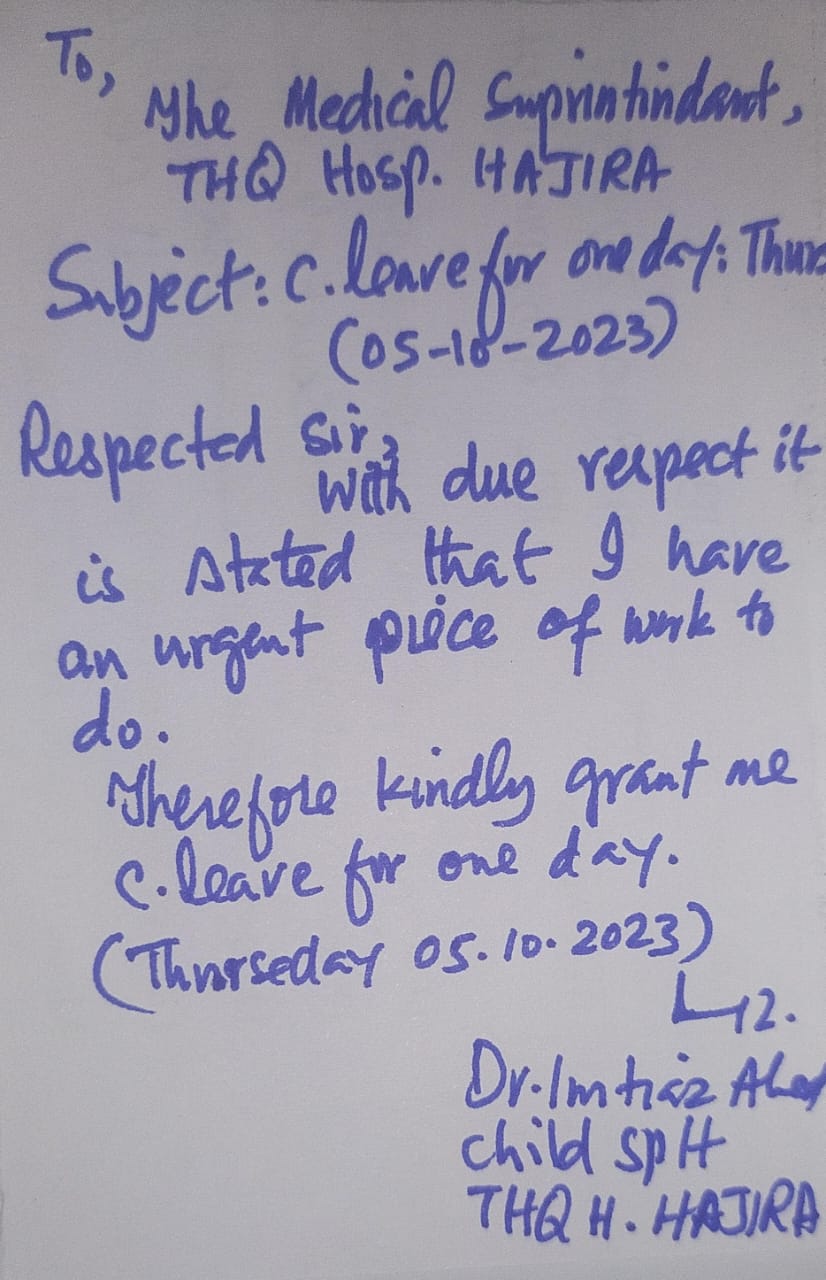 To,
The Medical Suprintindant,
THQ Hosp. HAJIRA
Subject: C. leave for one day: Thurs
(05-10-2023)
Respected Sir,
With due respect it
is stated that I have
an urgent piece of work to
do.
Therefore kindly grant me
C. leave for one day.
(Thurseday 05.10.2023)
Dr. Imtiaz
child spH
THQ H. HAJIRA